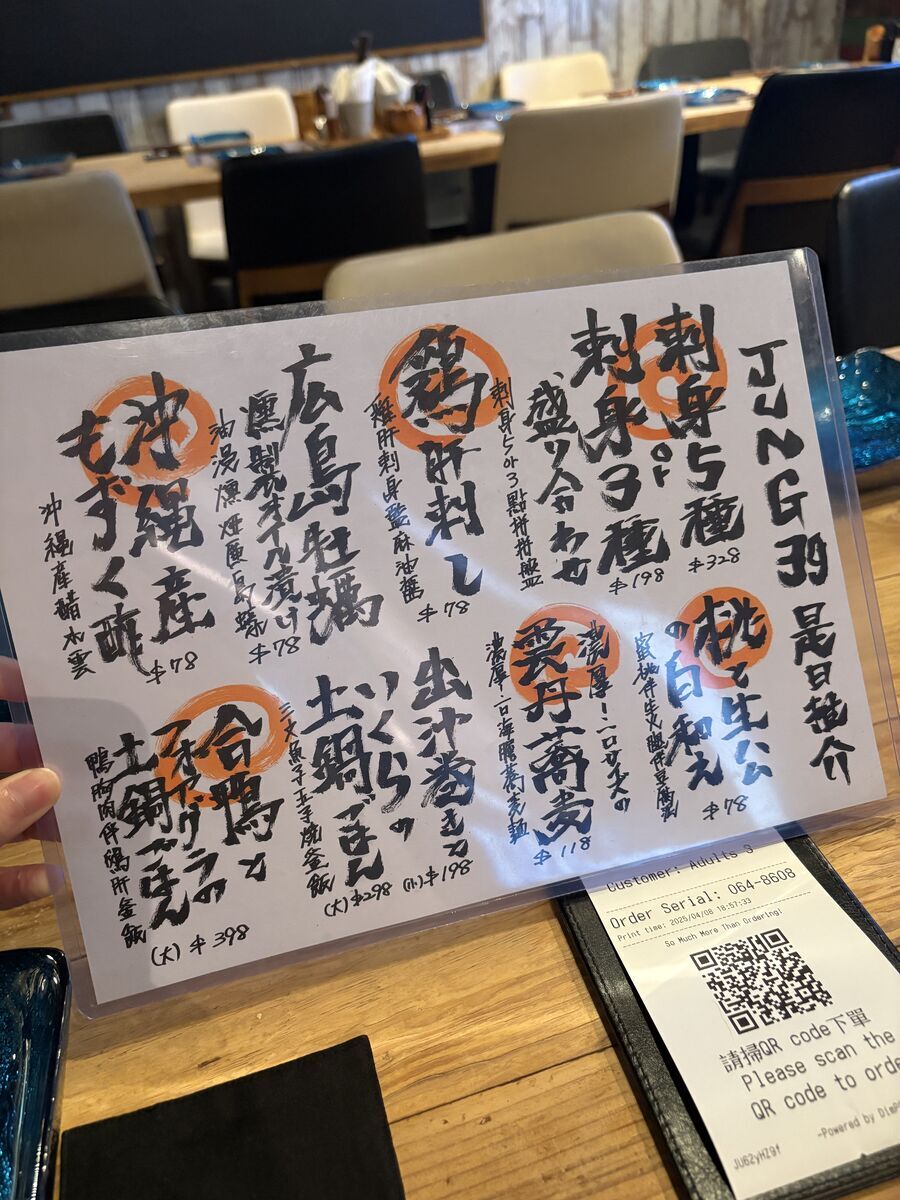 JING 39 是日推介
刺身5種
or
$328
刺身3種
盛り合わせ
$198
刺身5 or 3點拼拼盤
鶏肝刺し
$78
雞肝刺身藍麻油醬
広島牡蠣
燻製オイル漬け
$78
油浸燻煙廣島蠔
沖縄産
もずく酢
$78
沖縄産醋水雲
桃と生公
の白和え
$78
蜜桃伴生火腿伴豆腐
濃厚!一口サイズの
雲丹蕎麦
$118
濃厚一口海膽蕎麦麺
出汁巻きと
いくらの
土鍋ごはん
(小) $198
(大) $298
三文魚子玉子燒釜飯
合鴨と
フォアグラの
土鍋ごはん
(大) $398
鴨胸肉伴鴨肝釜飯
Customer: Adults 3
Order Serial: 064-8608
Print time: 2025/04/08 18:57:33
So Much More Than Ordering!
請掃QR code下單
Please scan the
QR code to orde
-Powered by DimP
JU62yHZ9f